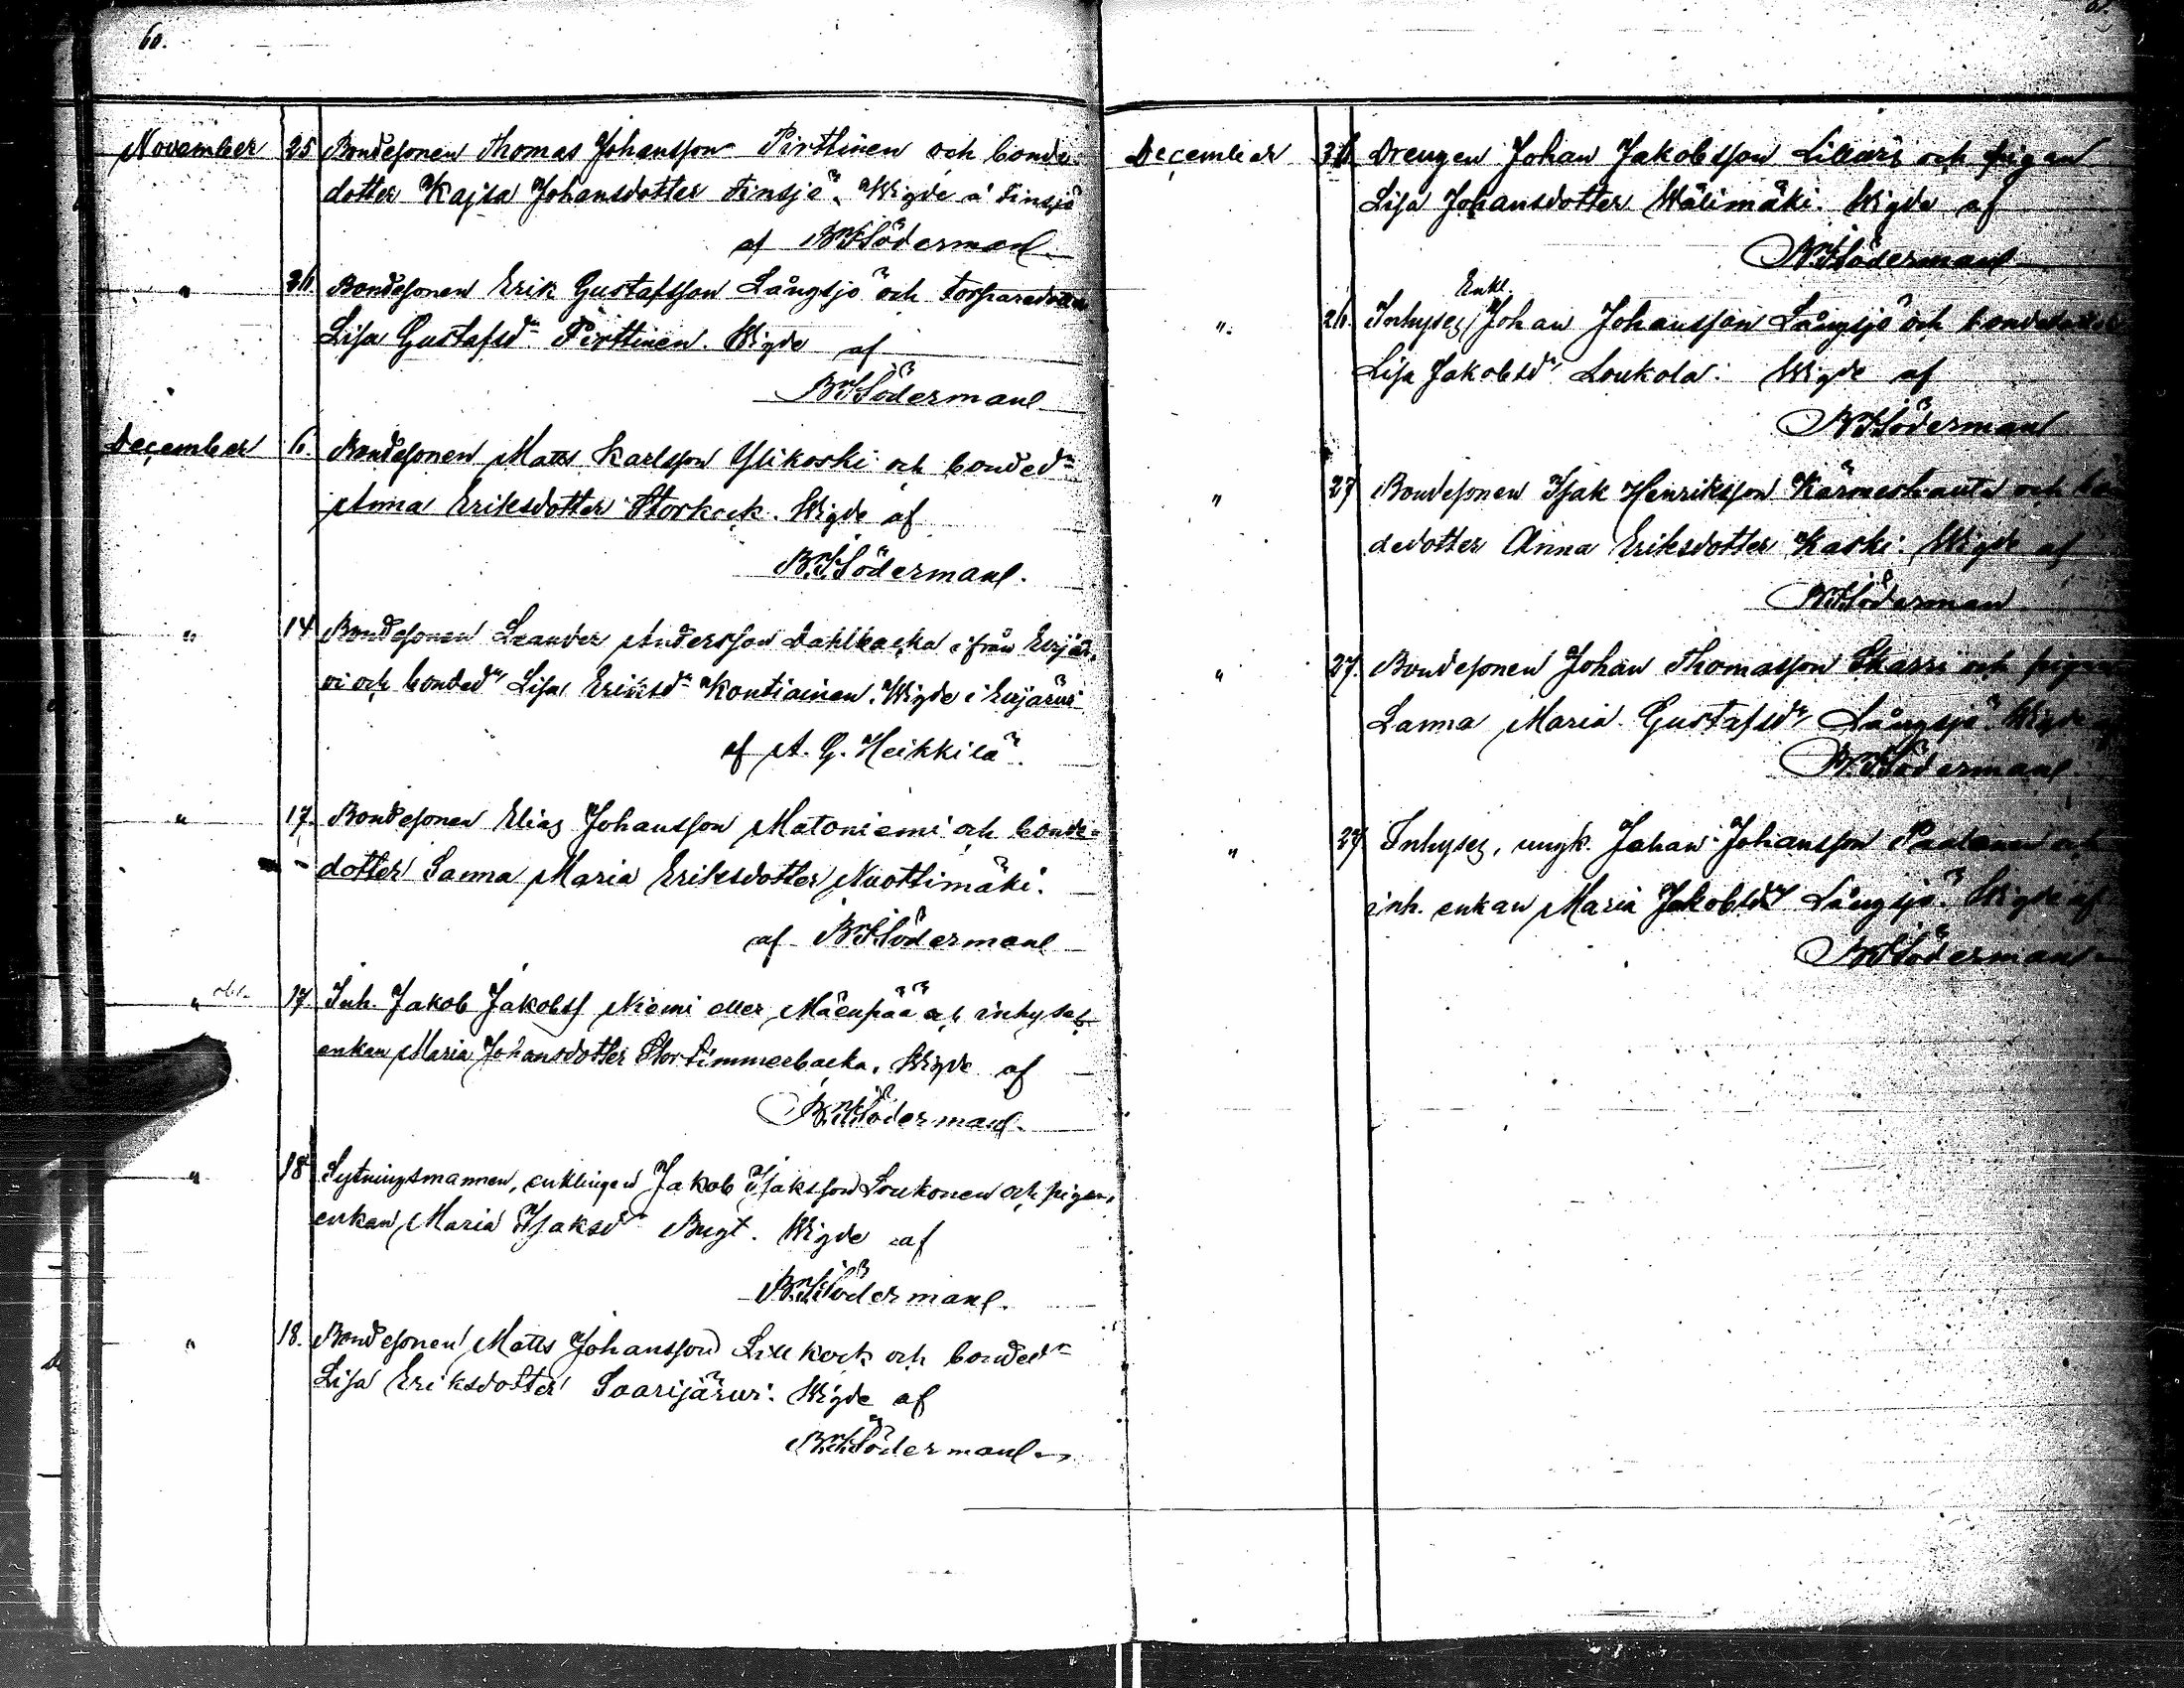 60.
November 25 Bondesonen Thomas Johansson Pirttinen och bonde
dotter Kajsa Johansdotter Finsjö. Wigde i Finsjö
af Söderman
" 26. Bondesonen Erik Gustafsson Långsjö och torparedotter
Lisa Gustafsdr Pirttinen. Wigde af
Söderman
December 6. Bondesonen Matts Karlsson Ylikoski och bondedr
Anna Eriksdotter Storkock. Wigde af
Söderman.
" 14 Bondesonen Leander Andersson Dahlbacka ifrån Evijär-
vi och bondedr Lisa Eriksdr Kontiainen. Wigde i Evijärvi
af A. G. Heikkilä.
" 17. Bondesonen Elias Johansson Matoniemi och bonde-
dotter Sanna Maria Eriksdotter Nuottimäki.
af Söderman
" 17. Inh. Jakob Jakobss Niemi eller Mäenpää och inhyses
enkan Maria Johansdotter Stortimmerbacka. Wigde af
Söderman.
" 18 Sytningsmannen, enklingen Jakob Isaksson Loukonen och pigan,
enkan Maria Isaksdr Bygt. Wigde af
Söderman.
" 18. Bondesonen Matts Johansson Lillkock och bondedr
Lisa Eriksdotter Saarijärvi. Wigde af
Söderman
December 26 Drengen Johan Jakobsson Lillkars och pigan
Lisa Johansdotter Wälimäki. Wigde af
Söderman
Enkl.
" 26. Inhyses, Johan Johansson Långsjö och bondedotter
Lisa Jakobsdr Loukola. Wigde af
Söderman
" 27 Bondesonen Isak Henriksson Kärmeshauta och bon
dedotter Anna Eriksdotter Kaski. Wigde af
Söderman
" 27. Bondesonen Johan Thomasson Skarra och pigan
Sanna Maria Gustafsdr Långsjö. Wigde
Söderman
" 27 Inhyses, ungk. Johan Johansson och
inh. enkan Maria Jakobsdr Långsjö. Wigde af
Söderman